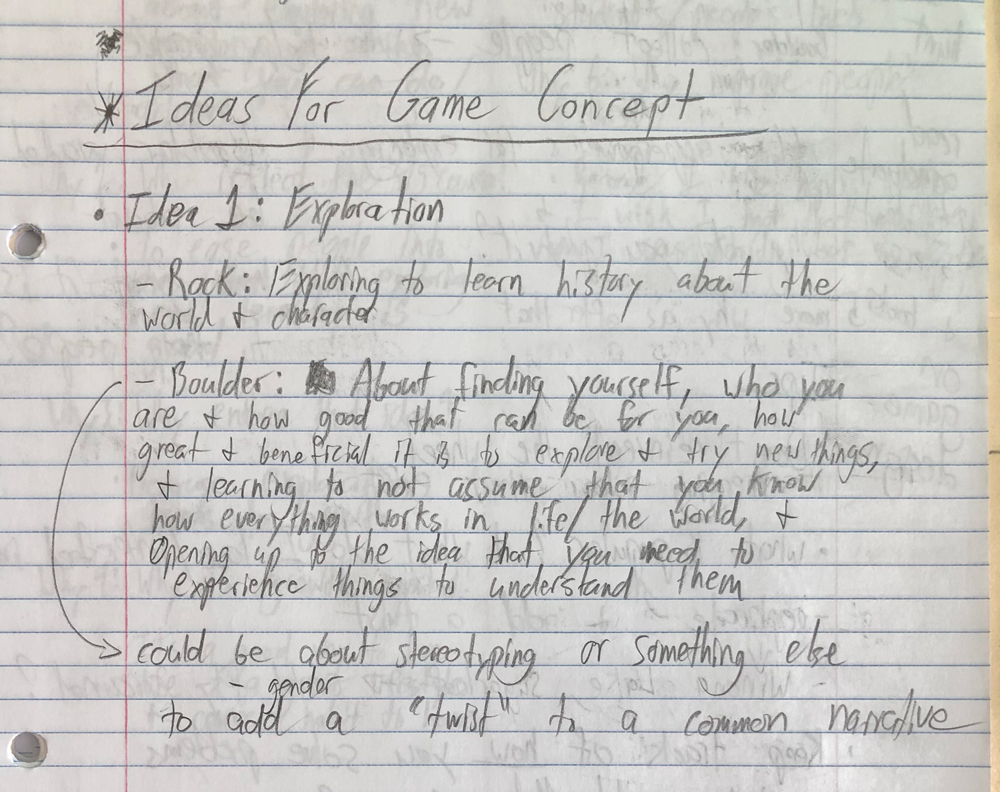 * Ideas For Game Concept
• Idea 1: Exploration
- Rock: Exploring to learn history about the
world & character
- Boulder: About finding yourself, who you
are & how good that can be for you, how
great & beneficial it is to explore & try new things,
& learning to not assume that you know
how everything works in life/ the world, &
Opening up to the idea that you need to
experience things to understand them
could be about stereotyping or something else
- gender
to add a "twist" to a common narrative